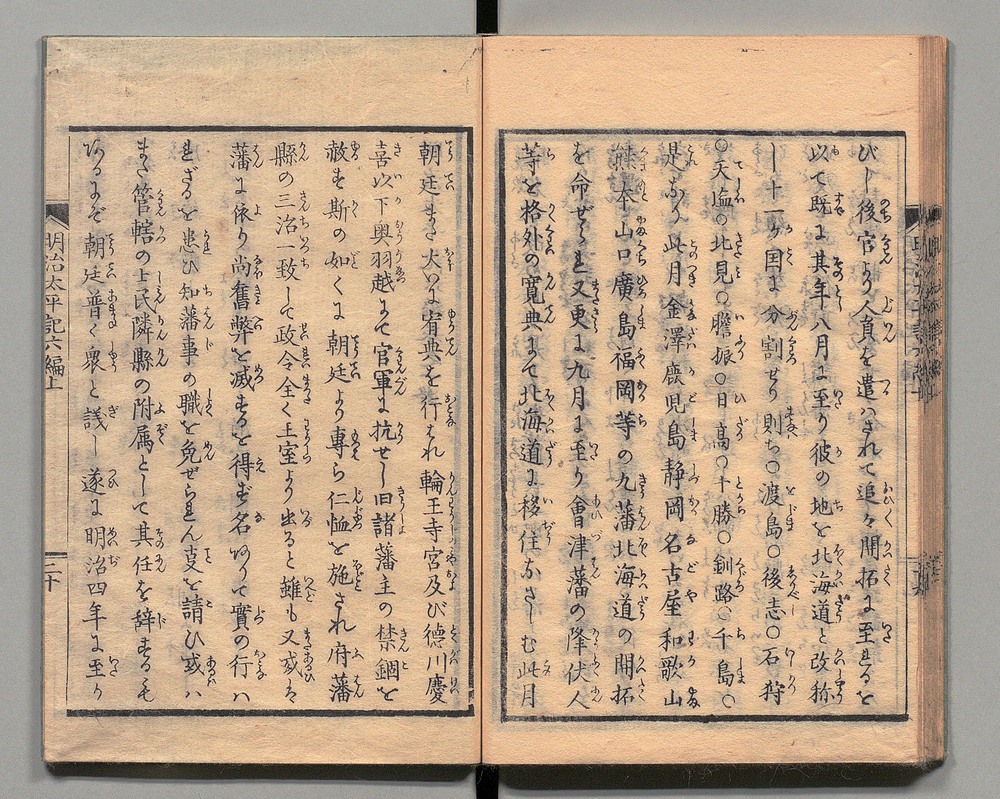 びし後官より人員を遣ハされて追々開拓に至れるを
以て既に其年八月に至り彼の地を北海道と改称
し十一ヶ国に分割せり則ち○渡島○後志○石狩
○天塩○北見○膽振○日高○十勝○釧路○千島○
是なり此月金澤鹿児島静岡名古屋和歌山
熊本山口廣島福岡等の九藩北海道の開拓
を命ぜられ又更に九月に至り會津藩の降伏人
等を格外の寛典にて北海道に移住なさしむ此月
朝廷また大いに宥典を行はれ輪王寺宮及び徳川慶
喜以下奥羽越にて官軍に抗せし旧諸藩主の禁錮を
赦す斯の如くに朝廷より専ら仁恤を施され府藩
縣の三治一致して政令全く王室より出ると雖も又或は
藩に依り尚舊弊を滅するを得ず名ありて實の行ハ
れざるを患ひ知藩事の職を免ぜられん事を請ひ或ハ
また管轄の士民隣縣の附属として其任を辞するも
あるにぞ朝廷普く衆と議し遂に明治四年に至り
明治太平記六編上
二十